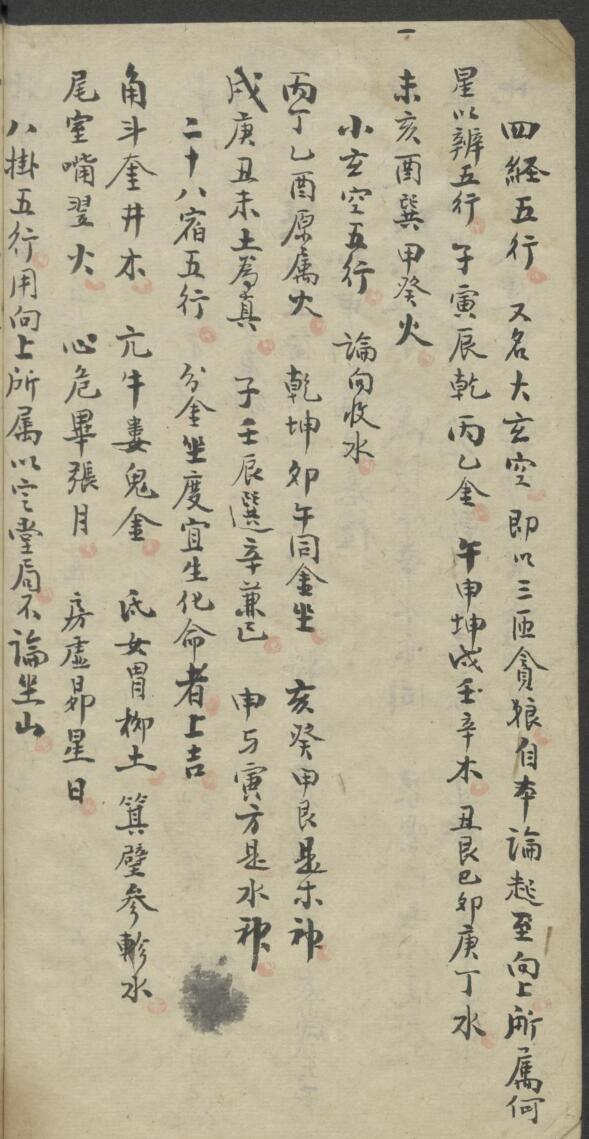 四経五行 又名大玄空 即以三匝貪狼自本論起至向上所属何
星以辨五行 子寅辰乾丙乙金 午申坤戌壬辛木 丑艮巳卯庚丁水
未亥酉巽甲癸火
小玄空五行 論向收水
丙丁乙酉原属火 乾坤卯午同金坐 亥癸甲艮是木神
戌庚丑未土為真 子壬辰巽辛兼巳 申与寅方是水神
二十八宿五行 分金坐度宜生化命者上吉
角斗奎井木 亢牛婁鬼金 氐女胃柳土 箕壁参軫水
尾室嘴翌火 心危畢張月 房虚昴星日
八掛五行用向上所属以定堂局不論坐山